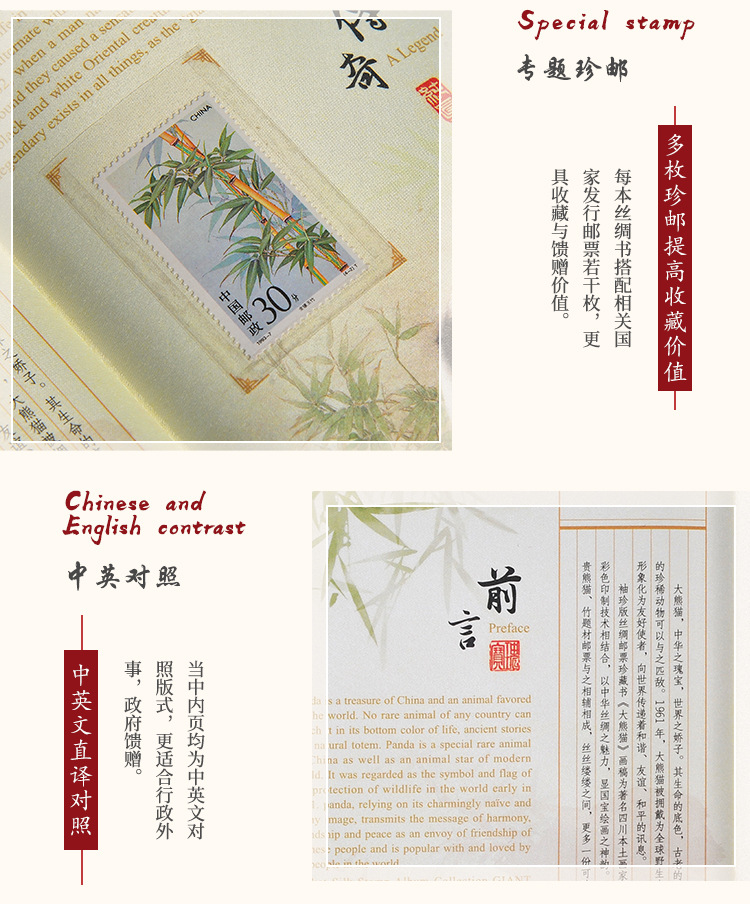 Special stamp
专题珍邮
多枚珍邮提高收藏价值
每本丝绸书搭配相关国
家发行邮票若干枚，更
具收藏与馈赠价值。
A Legend
when a man
und they caused a
lack and white Oriental
gendary exists in all things, as the
CHINA
中国邮政
30分
(4-2)T
1993-7
大熊猫
其生命
Chinese and
English contrast
中英对照
中英文直译对照
当中内页均为中英文对
照版式，更适合行政外
事，政府馈赠。
前言
Preface
is a treasure of China and an animal favored
world. No rare animal of any country can
it in its bottom color of life, ancient stories
natural totem. Panda is a special rare animal
China as well as an animal star of modern
It was regarded as the symbol and flag of
protection of wildlife in the world early in
panda, relying on its charmingly naïve and
image, transmits the message of harmony,
and peace as an envoy of friendship of
people and is popular with and loved by
people in the world.
大熊猫，中华之瑰宝，世界之娇子。其生命的底色，古老的
的珍稀动物可以与之匹敌。1961 年，大熊猫被拥戴为全球野生
形象化为友好使者，向世界传递着和谐、友谊、和平的讯息。
袖珍版丝绸邮票珍藏书《大熊猫》画稿为著名四川本土画家
彩色印制技术相结合，以中华丝绸之魅力，显国宝绘画之神韵。
贵熊猫、竹题材邮票与之相辅相成，丝丝缕缕之间，更多一份可